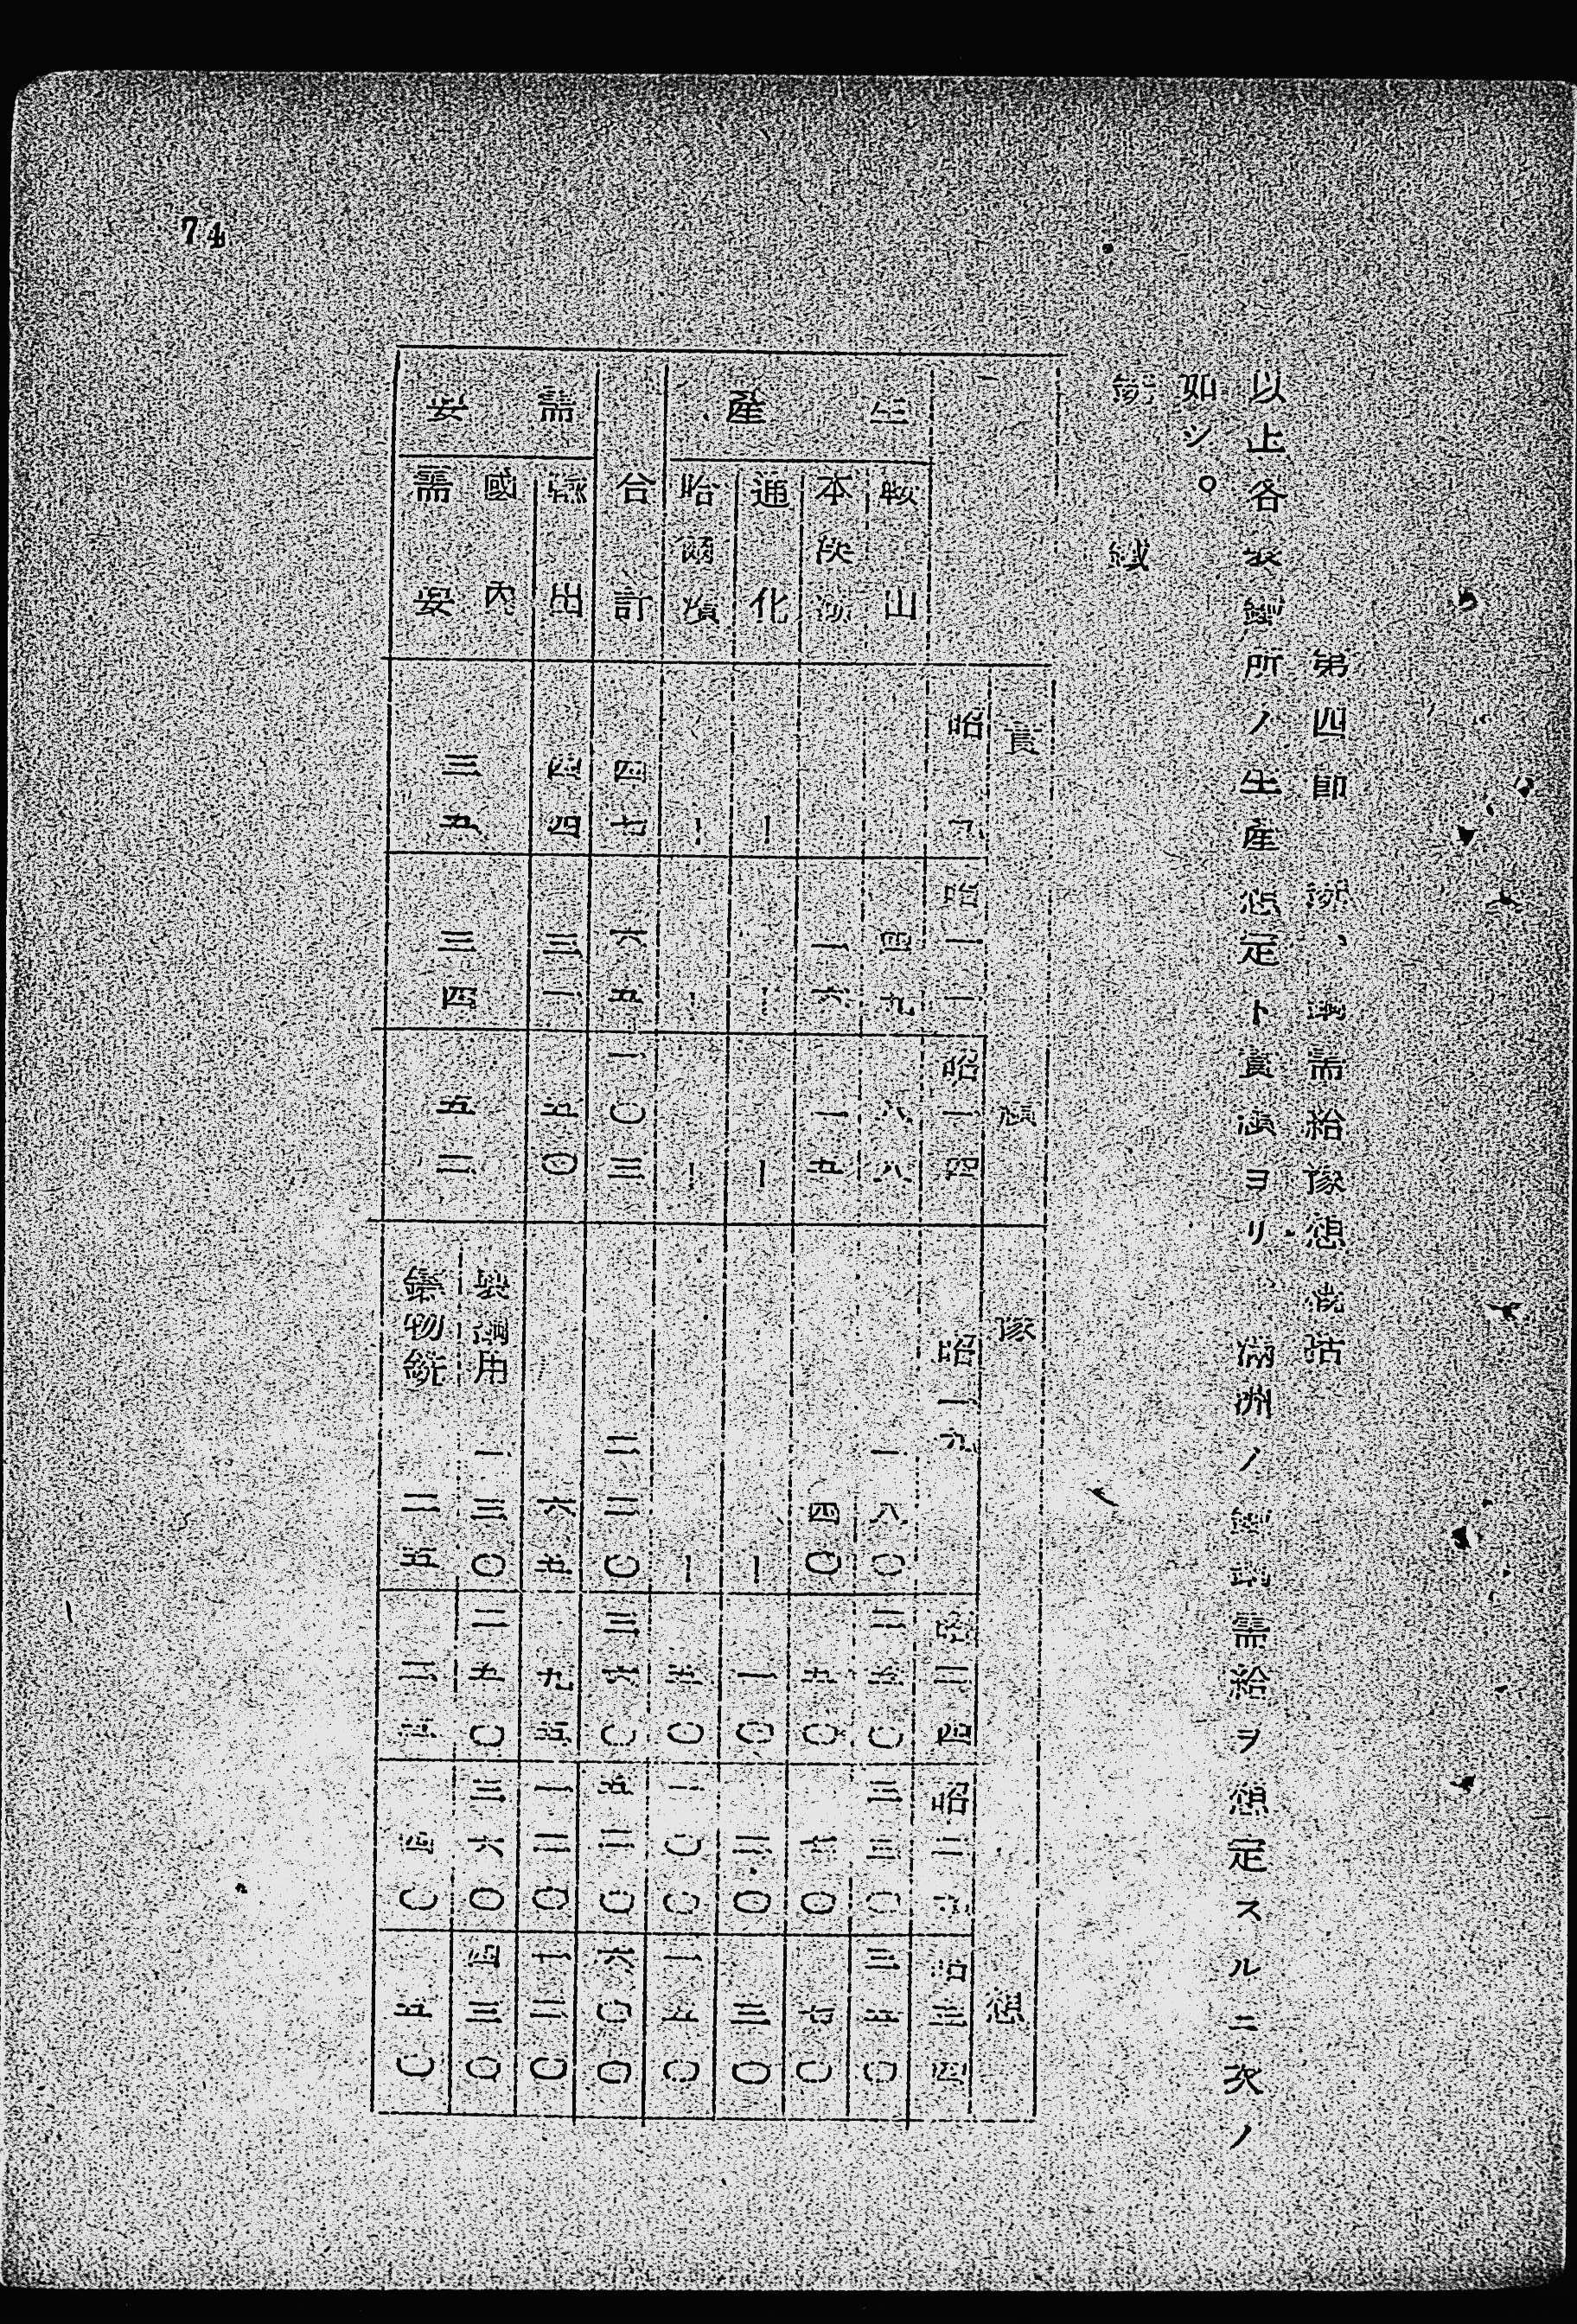 第四節 銑、鋼需給豫想概括
以上各製鐵所ノ生産想定ト實績ヨリ 滿洲ノ鐵鋼需給ヲ想定スルニ次ノ
如シ。
銑鐵
實績 豫想
昭九 昭一一 昭一四 昭一九 昭二四 昭二九 昭三四
生産 鞍山 四九 八八 一八〇 二五〇 三三〇 三五〇
本溪湖 一六 一五 四〇 五〇 七〇 七〇
通化 ー ー ー ー 一〇 二〇 三〇
哈爾濱 ー ー ー ー 五〇 一〇〇 一五〇
合計 四七 六五 一〇三 二二〇 三六〇 五二〇 六〇〇
需要 輸出 四四 三一 五〇 六五 九五 一二〇 一二〇
國内需要 三五 三四 五二
製鋼用 一三〇 二五〇 三六〇 四三〇
鑄物銑 二五 二五 四〇 五〇
74